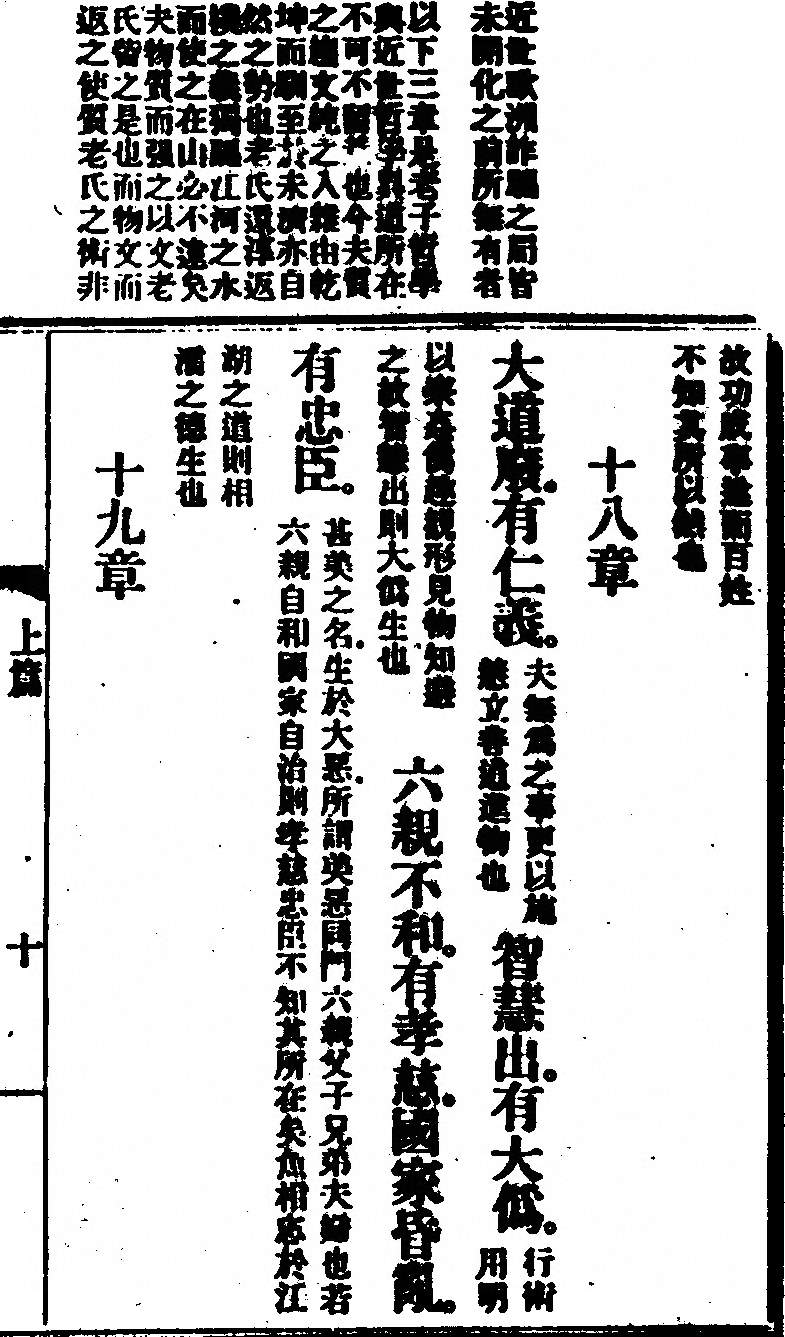 近世歐洲詐騙之局皆
未開化之前所無有者
以下三章是老子哲學
與近世哲學異道所在
不可不留意也今夫質
之趨文純之入雜由乾
坤而馴至於未濟亦自
然之勢也老氏還淳返
樸之義猶驅江河之水
而使之在山必不逮矣
夫物質而强之以文老
氏訾之是也而物文而
返之使質老氏之術非
故功成事遂而百姓
不知其所以然也
十八章
大道廢。有仁義。
夫無爲之事更以施
慧立善道進物也
智慧出。有大僞。
行術
用明
以察姦僞趣覩形見物知避
之故智慧出則大僞生也
六親不和。有孝慈。國家昏亂。
有忠臣。
甚美之名生於大惡所謂美惡同門六親父子兄弟夫婦也若
六親自和國家自治則孝慈忠臣不知其所在矣魚相忘於江
湖之道則相
濡之德生也
十九章
上篇
十